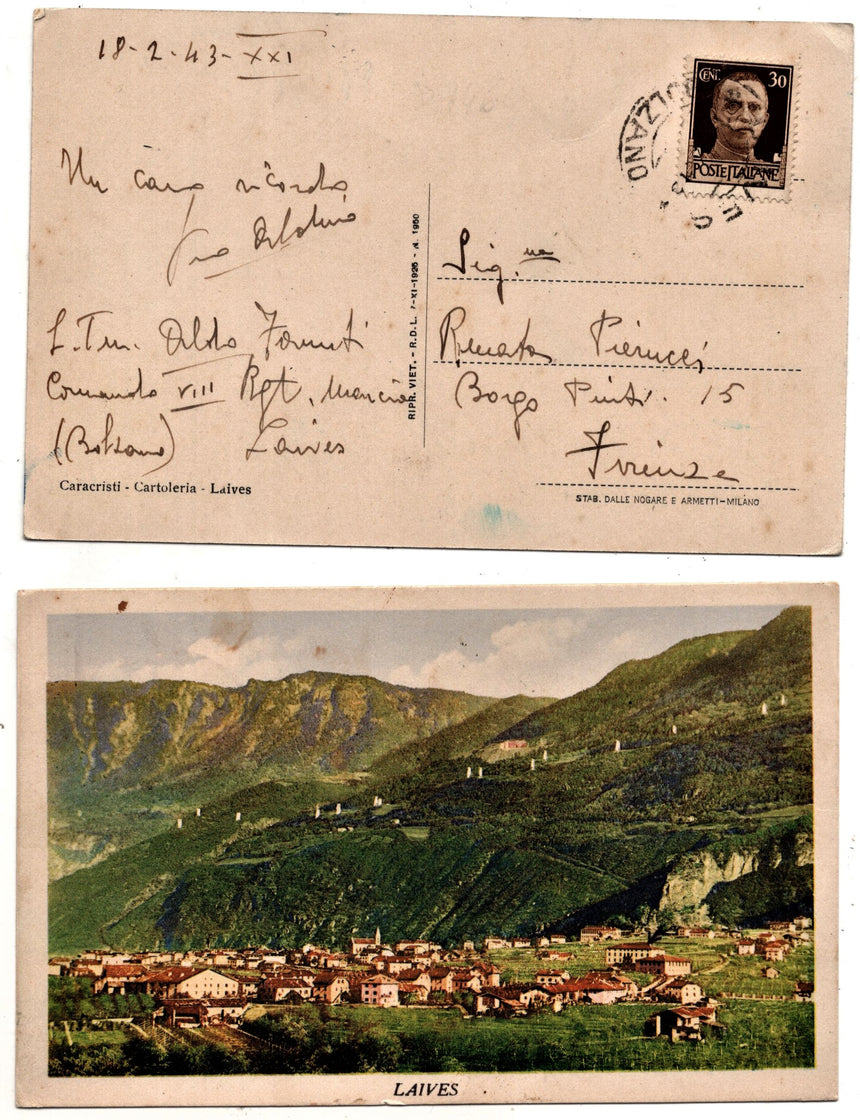 18-2-43-XXI
CENT. 30
POSTE ITALIANE
BOLZANO
Un caro ricordo
Sig.na
L. Ten. Aldo
Comando VIII Rgt. Marcia
(Bolzano) Laives
Renata Pierucci
Borgo Pinti. 15
Firenze
RIPR. VIET. - R.D.L. 7-XI-1925 - N. 1950
Caracristi - Cartoleria - Laives
STAB. DALLE NOGARE E ARMETTI - MILANO
LAIVES